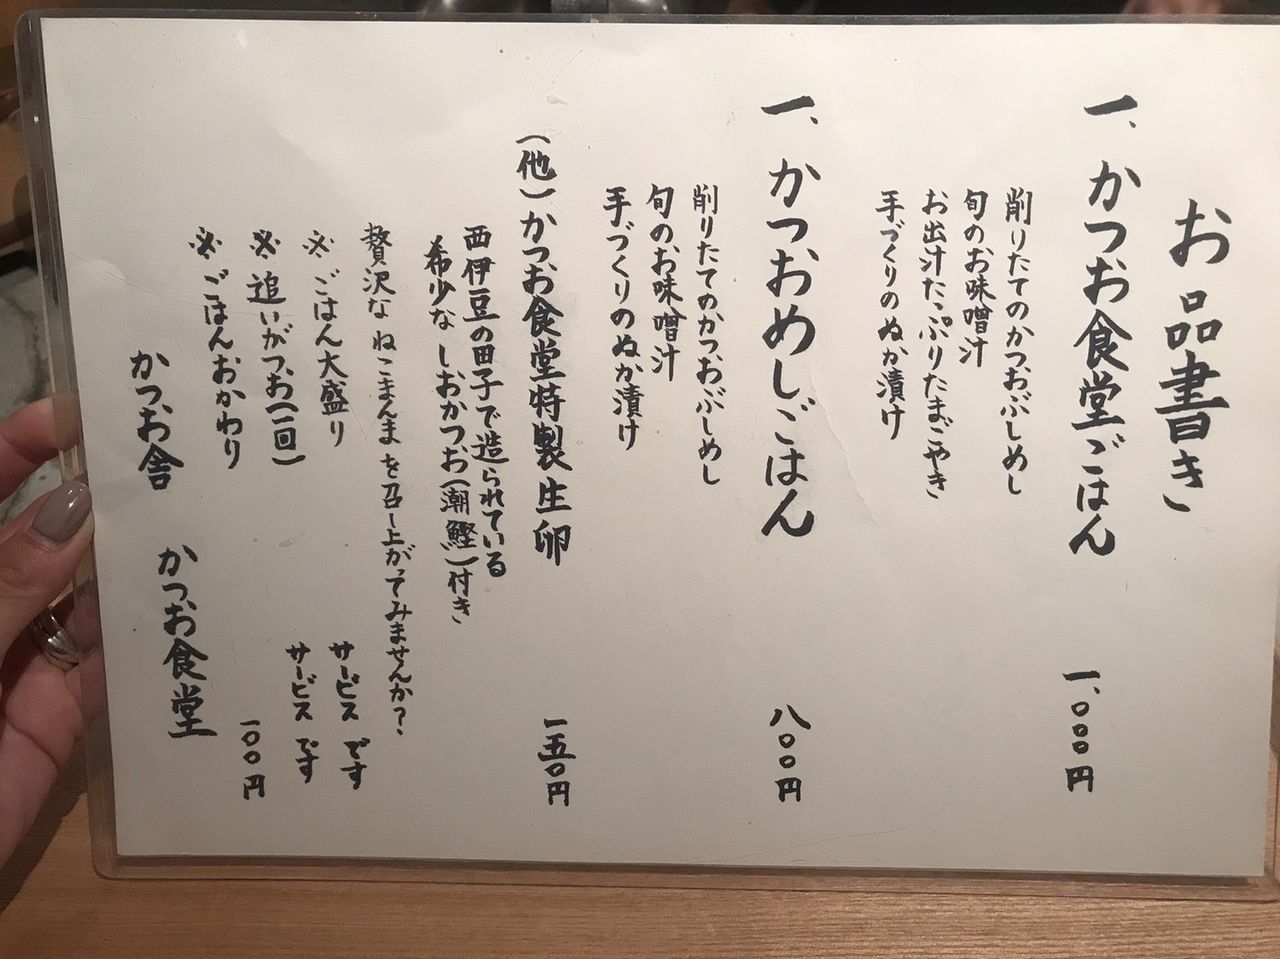 お品書き
一、かつお食堂ごはん 一、〇〇〇円
削りたてのかつおぶしめし
旬のお味噌汁
お出汁たっぷりたまごやき
手づくりのぬか漬け
一、かつおめしごはん 八〇〇円
削りたてのかつおぶしめし
旬のお味噌汁
手づくりのぬか漬け
(他)かつお食堂特製生卵 一五〇円
西伊豆の田子で造られている
希少な しおかつお(潮鰹)付き
贅沢な ねこまんま を召し上がってみませんか?
※ ごはん大盛り サービスです
※ 追いがつお(一回) サービスです
※ ごはんおかわり 一〇〇円
かつお舎 かつお食堂